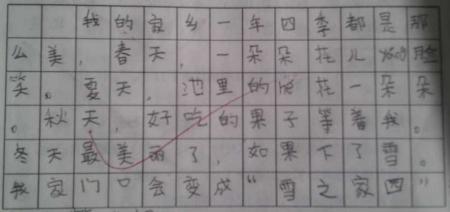 我的家乡一年四季都是那
么美,春天,一朵朵花儿脸
笑。夏天,池里的花一朵朵
。秋天,好吃的果子等着我。
冬天最美丽了,如果下了雪。
我家门口会变成“雪之家四”